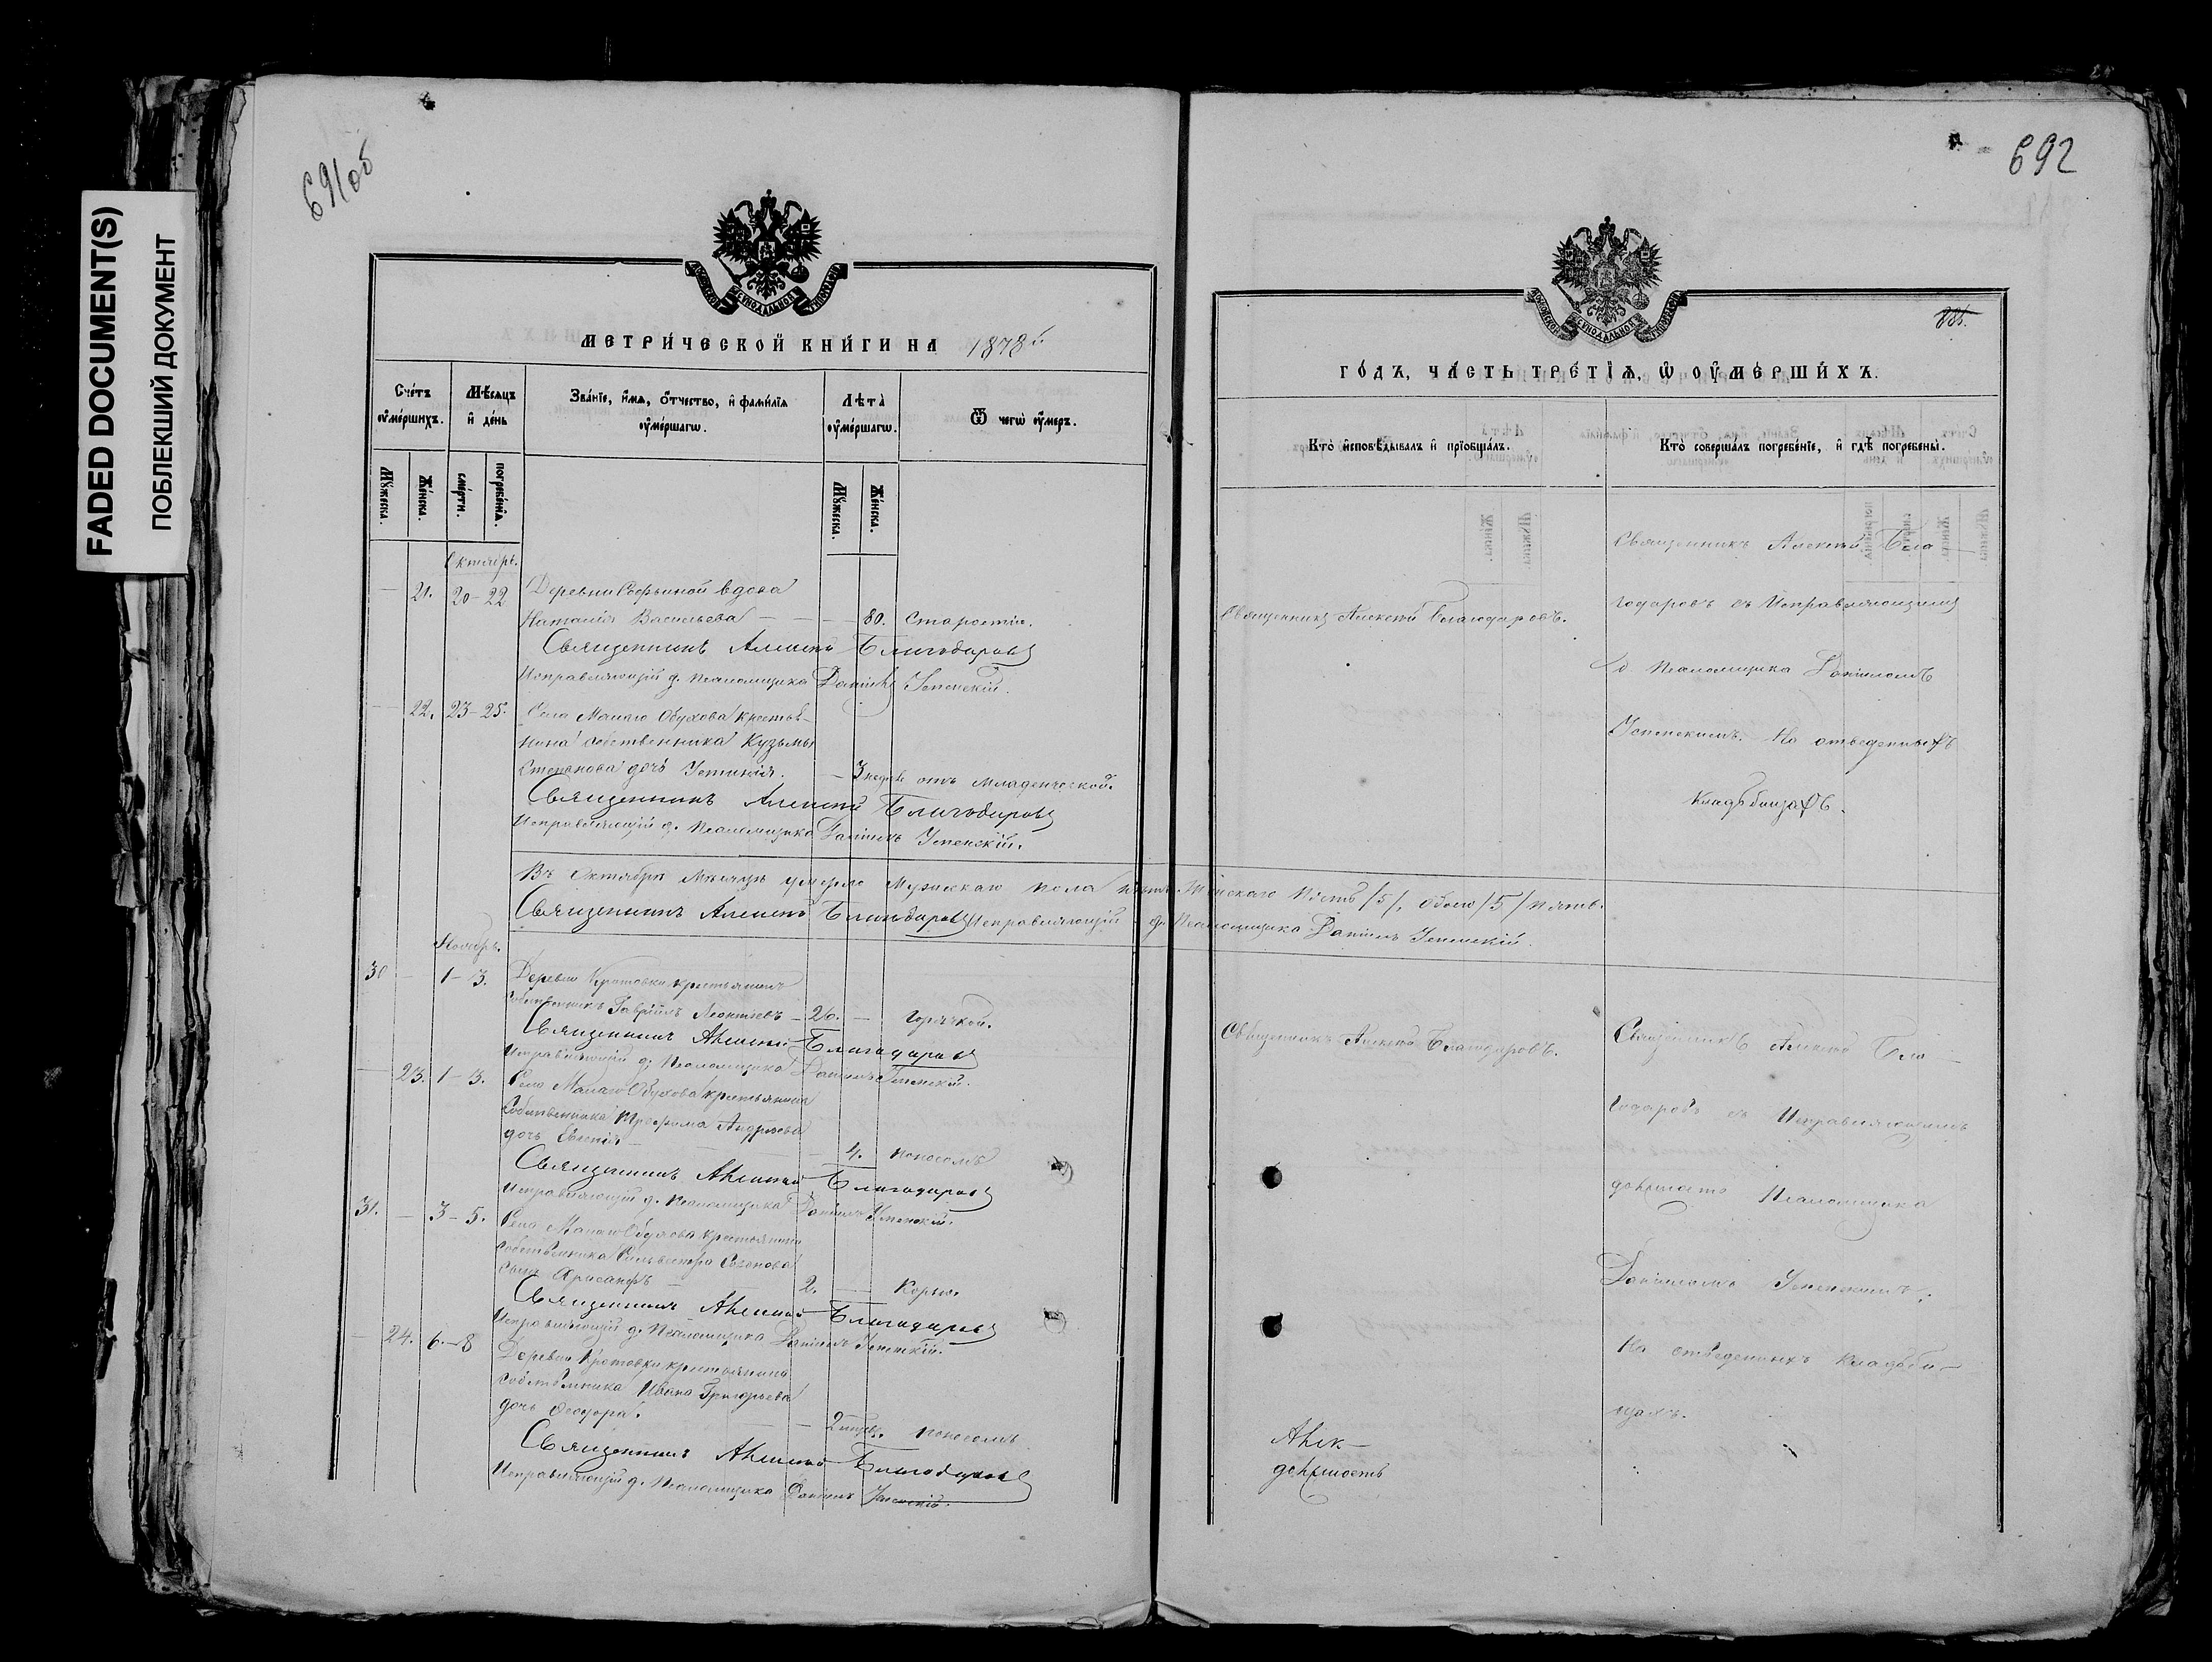 691об
692
FADED DOCUMENT(S)
ПОБЛЕКШИЙ ДОКУМЕНТ
МОСКОВСКОЙ СѴНОДАЛЬНОЙ ТИПОГРАФІИ
МЕТРИ́ЧЕСКОЙ КНИ́ГИ НА 1878й
Сче́тъ ѹ҆ме́ршихъ.
Мѣ́сяцъ и҆ де́нь
Зва́нїе, и҆́мѧ, ѻ҆́тчество, и҆ фами́лїѧ ѹ҆ме́ршагѡ.
Лѣта̀ ѹ҆ме́ршагѡ.
Ѿ чегѡ̀ ѹ҆́меръ.
Мꙋ́жеска.
Же́нска.
сме́рти.
погребе́нїѧ.
Мꙋ́жеска.
Же́нска.
Октябрь.
— 21. 20-22 Деревни Софьиной вдова
Наталія Васильева — — — 80. Старостію.
Священникъ Алексѣй Благодаровъ
Исправляющій д. Псаломщика Даніилъ Успенскій.
— 22. 23-25. Села Малаго Обухова крестья-
нина собственника Кузьмы
Степанова дочь
— 3 недѣл отъ младенческой.
Священникъ Алексѣй Благодаровъ
Исправляющій д. Псаломщика Даніилъ Успенскій.
Въ Октябрѣ Мѣсяцѣ умерло Мужскаго пола нѣтъ Женскаго Пять /5/, обоего /5/ пять.
Священникъ Алексѣй Благодаровъ Исправляющій д. Псаломщика Даніилъ Успенскій.
Ноябрь.
30 — 1-3. Деревни Кротовки крестьянинъ
собственникъ Гавріилъ Леонтьевъ — 26. — Горячкой.
Священникъ Алексѣй Благодаровъ
Исправляющій д. Псаломщика Даніилъ Успенскій.
— 23. 1-3. Села Малаго Обухова крестьянина
собственника Трофима Андреева
дочь Евгенія — 4. поносомъ
Священникъ Алексѣй Благодаровъ
Исправляющій д. Псаломщика Даніилъ Успенскій.
31. — 3-5. Села Малаго Обухова крестьянина
собственника Сильвестра Созонова
сынъ Хрисанфъ 2. — Корью.
Священникъ Алексѣй Благодаровъ
Исправляющій д. Псаломщика Даніилъ Успенскій.
— 24. 6.-8 Деревни Кротовки крестьянина
собственника Ивана Григорьева
дочь Ѳеодора. — 2 поносомъ
Священникъ Алексѣй Благодаровъ
Исправляющій д. Псаломщика Даніилъ Успенскій.
МОСКОВСКОЙ СѴНОДАЛЬНОЙ ТИПОГРАФІИ
ГО́ДЪ, ЧА́СТЬ ТРЕ́ТЇѦ, Ѡ ОУ҆МЕ́РШИХЪ.
Кто̀ и҆сповѣ́дывалъ и҆ прїѡбща́лъ.
Кто̀ соверша́лъ погребе́нїе, и҆ гдѣ̀ погребены̀.
Священникъ Алексѣй Благодаровъ.
Священникъ Алексѣй Бла-
годаровъ съ Исправляющимъ
д Псаломщика Даніиломъ
Успенскимъ. На отведенныхъ
кладбищахъ.
Священникъ Алексѣй Благодаровъ.
Священникъ Алексѣй Бла-
годаровъ съ Исправляющимъ
должность Псаломщика
Даніиломъ Успенскимъ;
На отведенныхъ кладби-
щахъ.
Алек-
должность